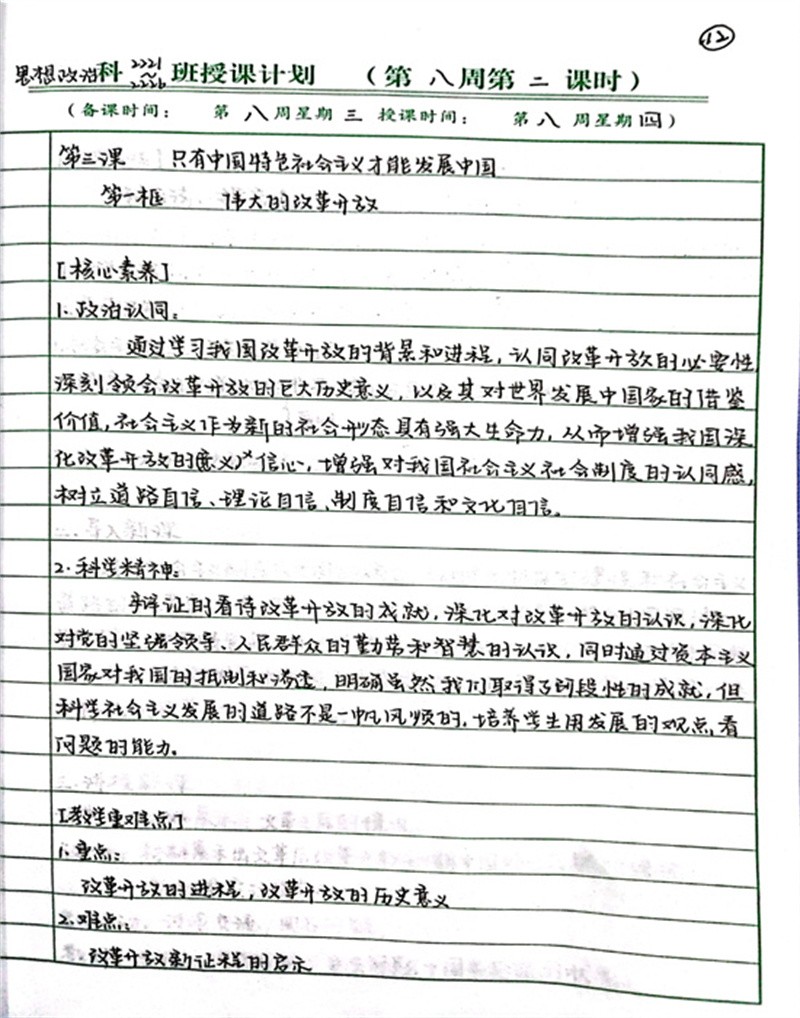 12
思想政治科 2221~2226 班授课计划 （第 八 周第 二 课时）
（备课时间： 第 八 周星期 三 授课时间： 第 八 周星期 四）
第三课 只有中国特色社会主义才能发展中国
第一框 伟大的改革开放
[核心素养]
1.政治认同：
通过学习我国改革开放的背景和进程，认同改革开放的必要性，
深刻领会改革开放的巨大历史意义，以及其对世界发展中国家的借鉴
价值，社会主义作为新的社会形态具有强大生命力，从而增强我国深
化改革开放的(意义)×信心，增强对我国社会主义社会制度的认同感，
树立道路自信、理论自信、制度自信和文化自信。
2.科学精神：
辩证的看待改革开放的成就，深化对改革开放的认识，深化
对党的坚强领导、人民群众的勤劳和智慧的认识，同时通过资本主义
国家对我国的抵制和渗透，明确虽然我们取得了阶段性的成就，但
科学社会主义发展的道路不是一帆风顺的，培养学生用发展的观点看
问题的能力。
[教学重难点]
1.重点：
改革开放的进程，改革开放的历史意义
2.难点：
改革开放新征程的启示